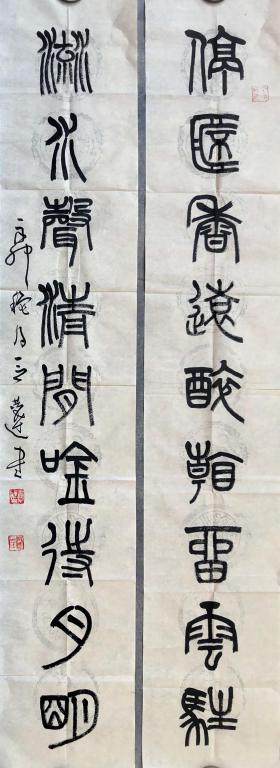 停香遠醉翰留雲駐
流水聲清閒唫待月明
辛卯穐月書